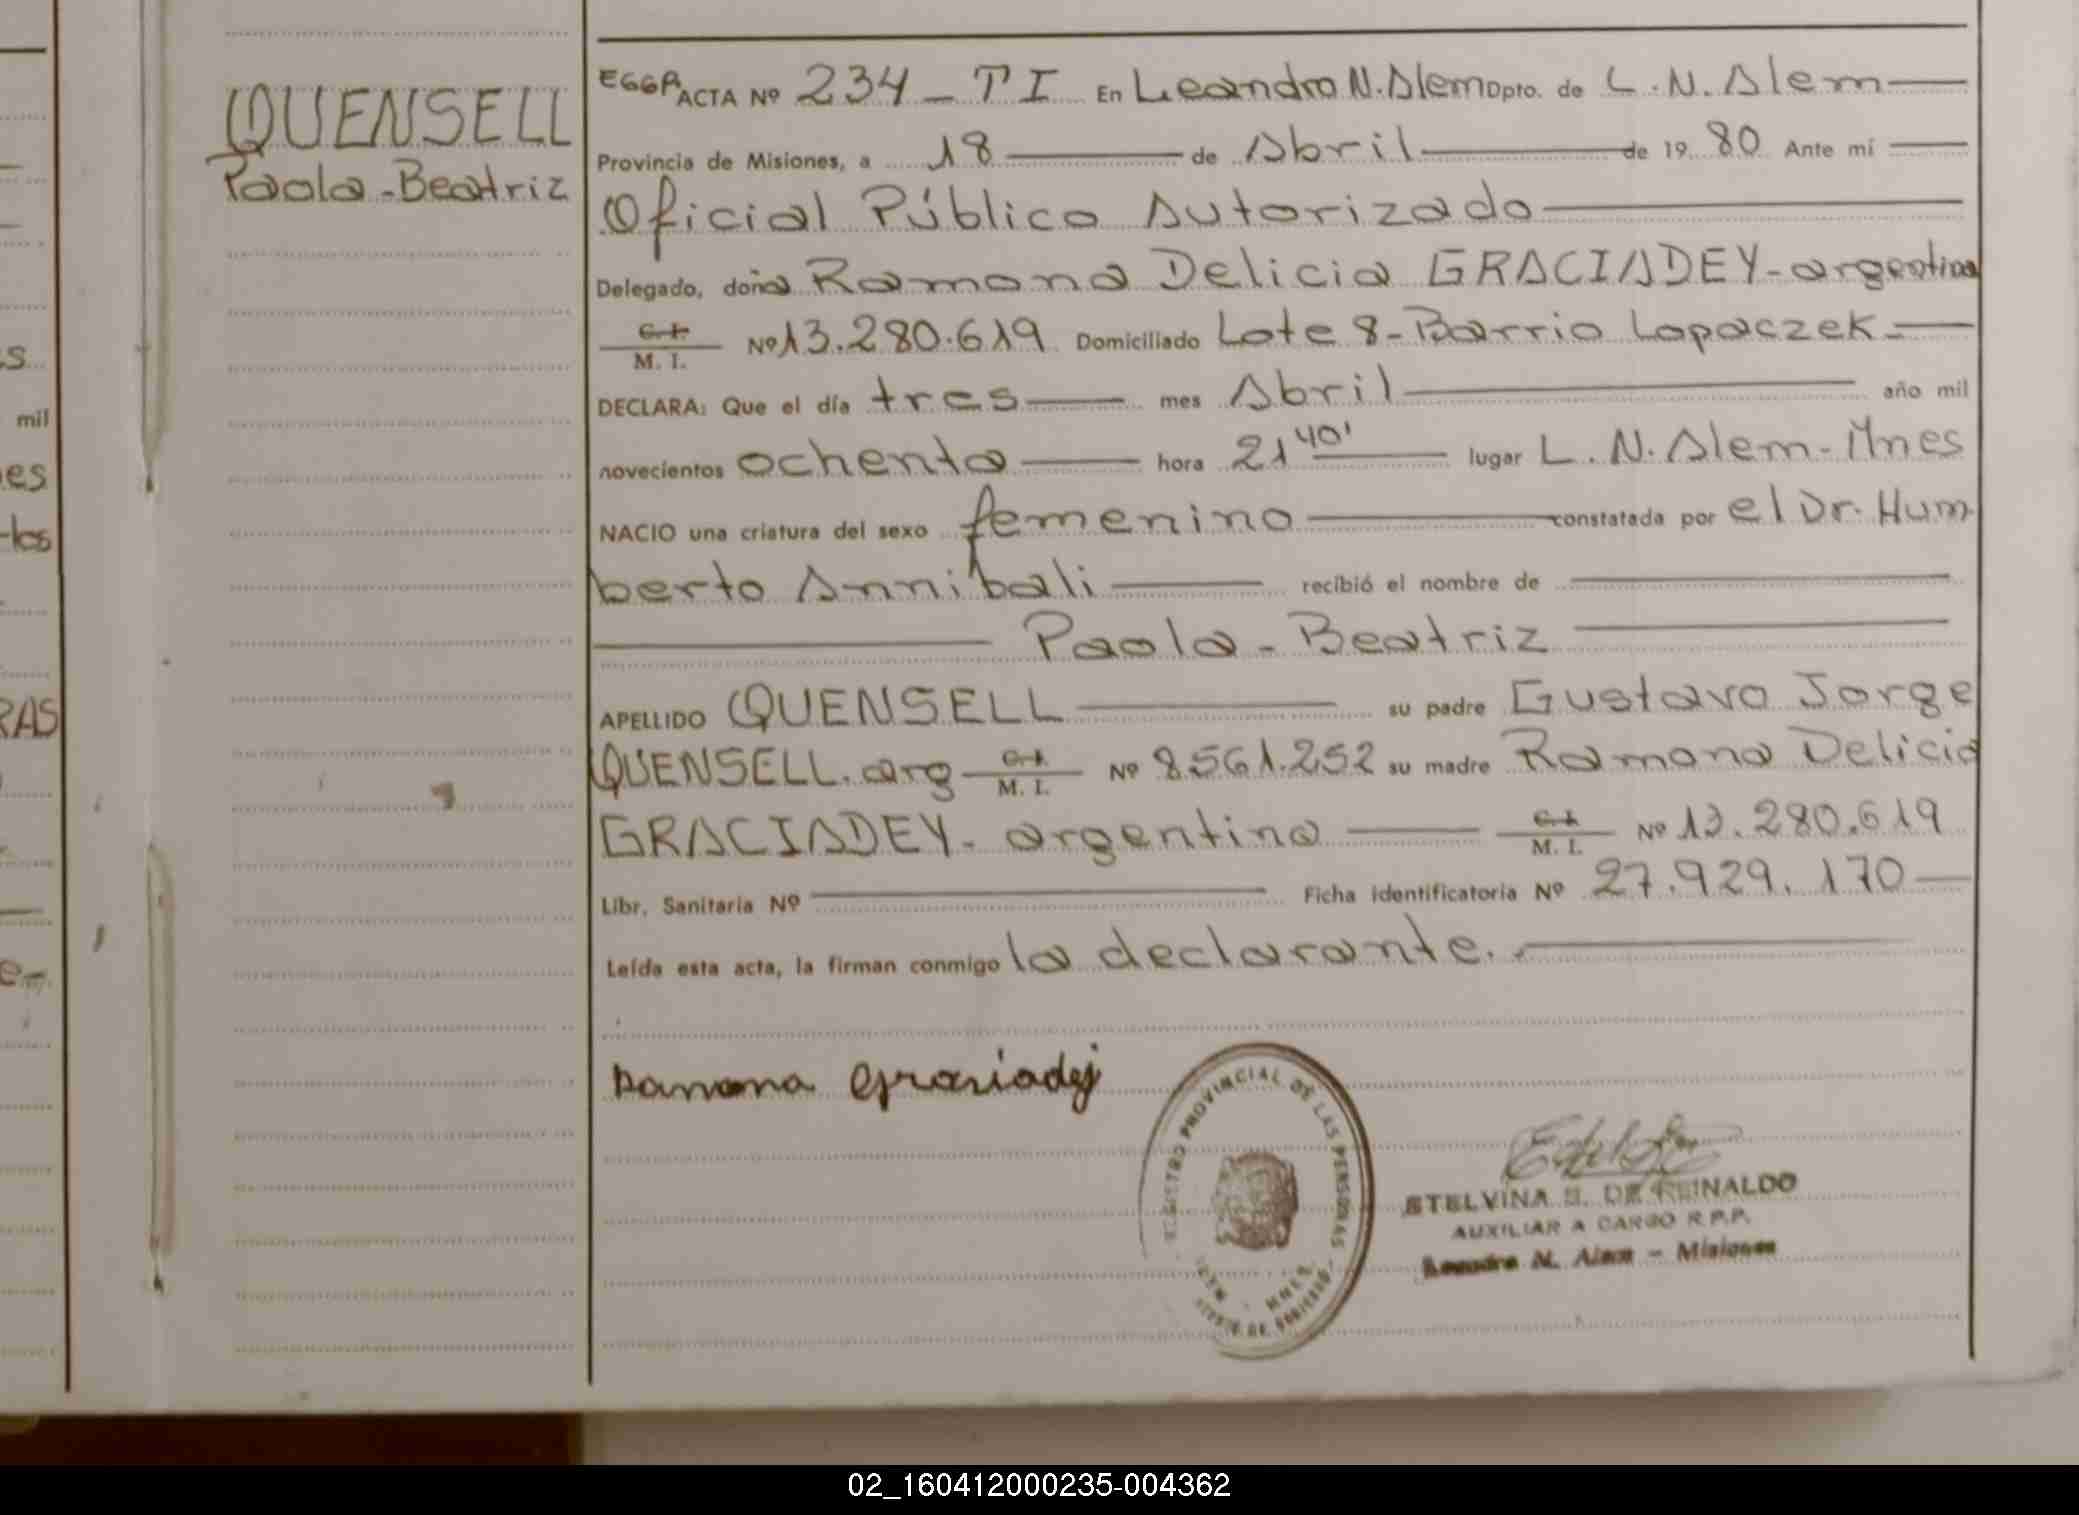 QUENSELL
Paola-Beatriz
ACTA Nº 234 - TI En Leandro N. Alem Dpto. de L. N. Alem
Provincia de Misiones, a 18 de Abril de 19 80 Ante mí
Oficial Público Autorizado
Delegado, doña Ramona Delicia GRACIADEY - argentina
C. I.
M. I. Nº 13.280.619 Domiciliado Lote 8 - Barrio Lopaczek
DECLARA: Que el día tres mes Abril año mil
novecientos ochenta hora 21 40' lugar L. N. Alem - Mnes
NACIO una criatura del sexo femenino constatada por el Dr. Hum
berto Annibali recibió el nombre de
Paola - Beatriz
APELLIDO QUENSELL su padre Gustavo Jorge
QUENSELL. arg C. I.
M. I. Nº 8.561.252 su madre Ramona Delicia
GRACIADEY - argentina C. I.
M. I. Nº 13.280.619
Libr. Sanitaria Nº Ficha identificatoria Nº 27.929.170
Leída esta acta, la firman conmigo la declarante.
Ramona Grasiadej
REGISTRO PROVINCIAL DE LAS PERSONAS
STELVINA S. DE REINALDO
AUXILIAR A CARGO R.P.P.
Leandro N. Alem - Misiones
s
mil
es
los
RAS
e
02_160412000235-004362